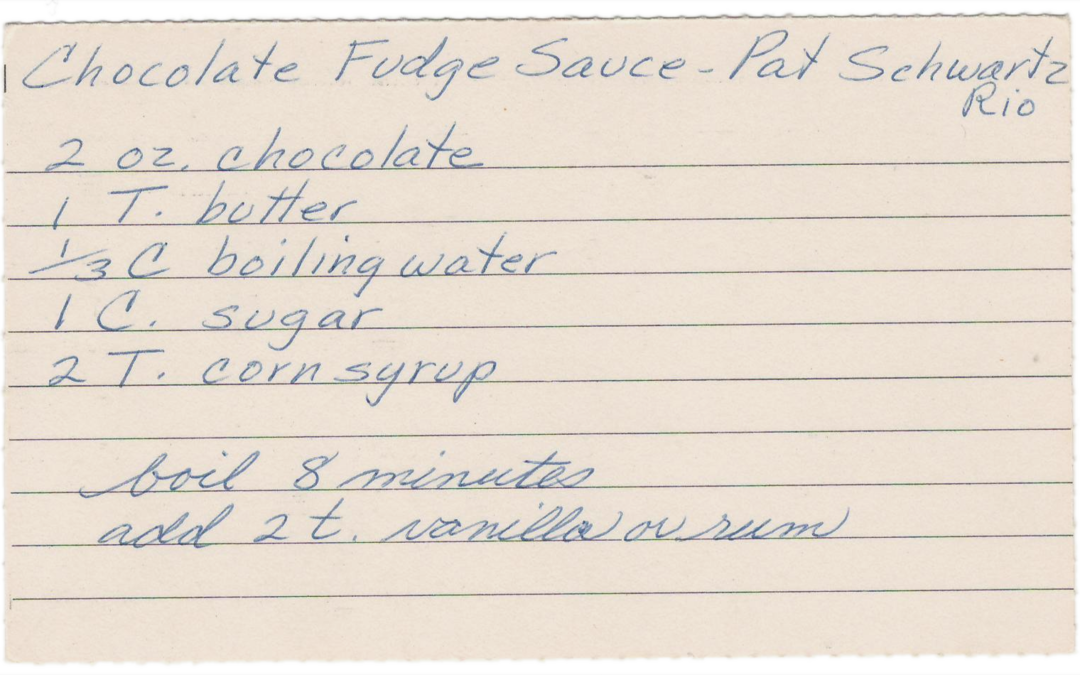 Chocolate Fudge Sauce - Pat Schwartz
Rio
2 oz. chocolate
1 T. butter
1/3 C boiling water
1 C. sugar
2 T. corn syrup
boil 8 minutes
add 2 t. vanilla or rum